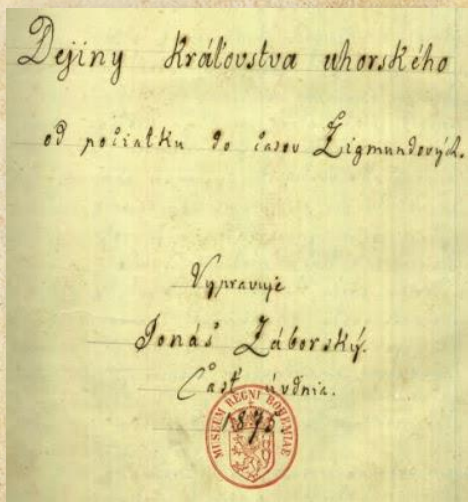 Dejiny Kráľovstva uhorského
od počiatku do časov Žigmundových.
Vypravuje
Jonáš Záborský.
Časť úvodnia.
MUSEUM REGNI BOHEMIAE